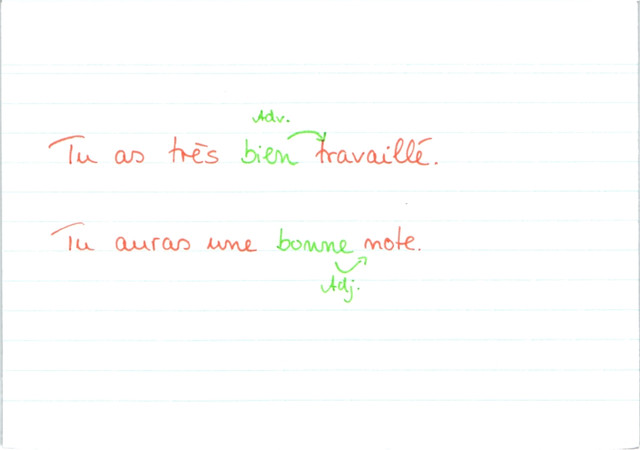 Adv.
Tu as très bien travaillé.
Tu auras une bonne note.
Adj.